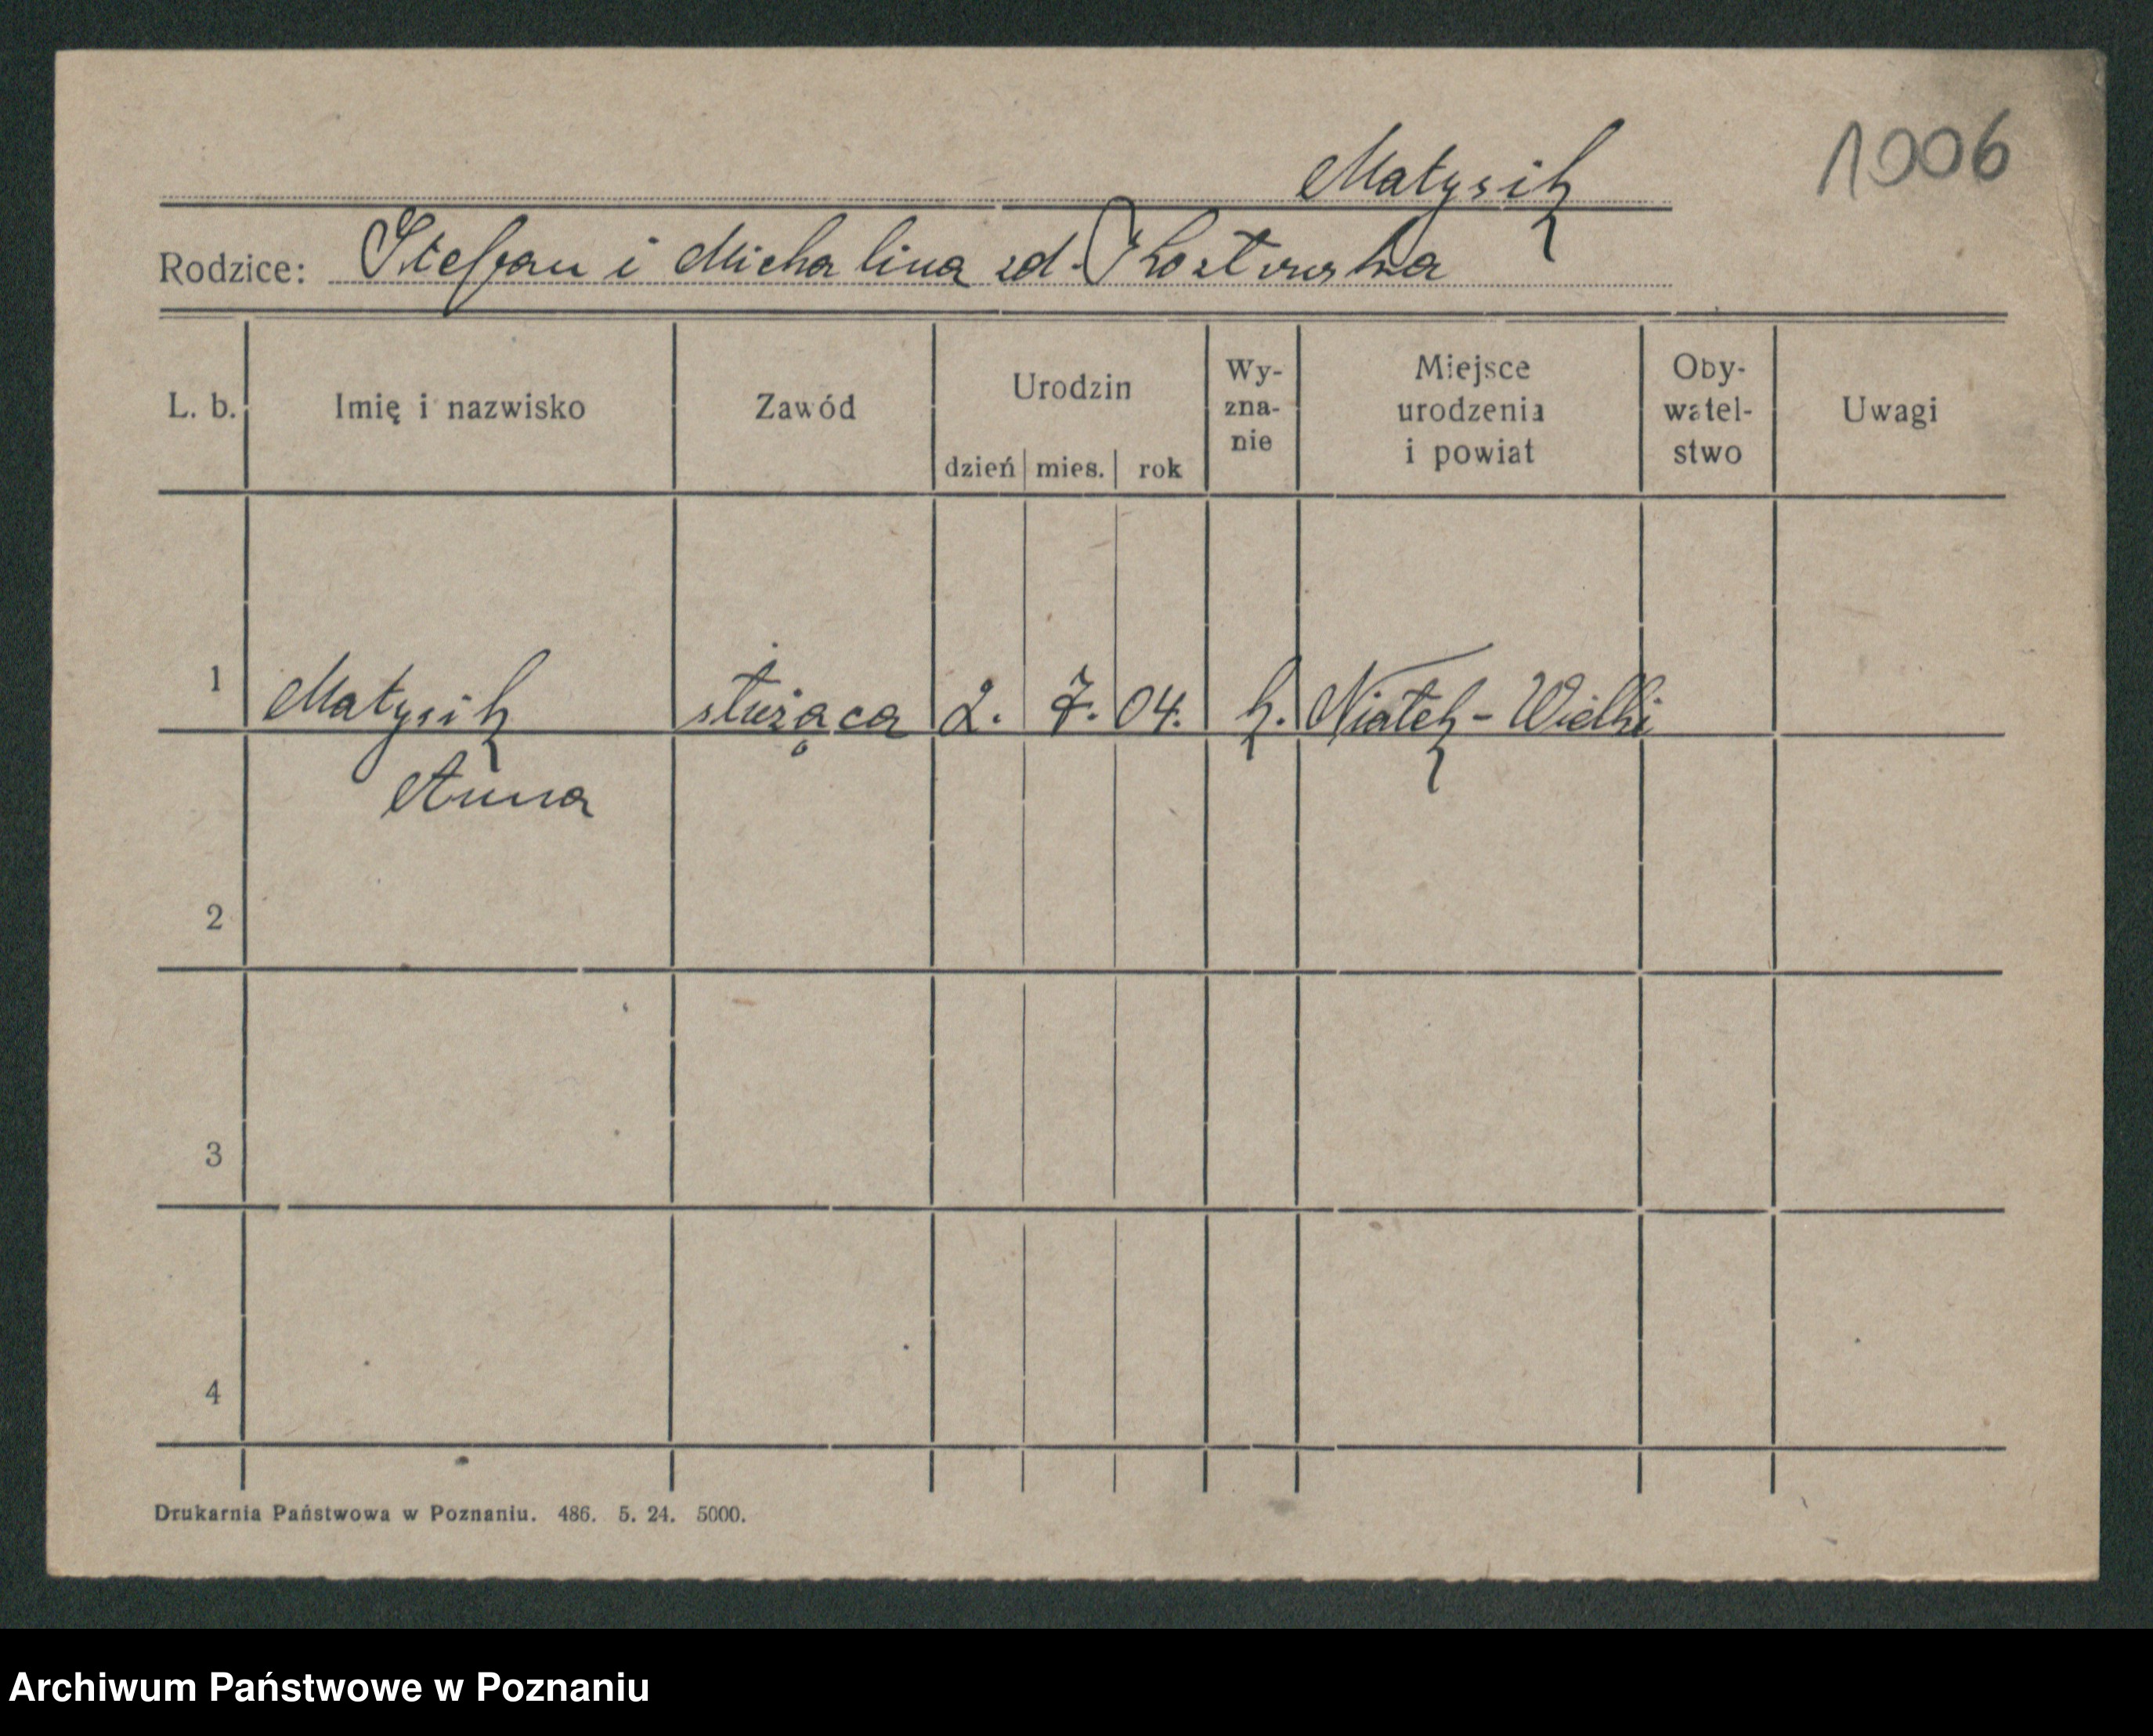 1006
Matysik
Rodzice: Stefan i Michalina zd.
L. b. Imię i nazwisko Zawód Urodzin dzień mies. rok Wy-zna-nie Miejsce urodzenia i powiat Oby-watel-stwo Uwagi
1 Matysik służąca 2. 7. 04. k. Niałek-Wielki
Anna
2
3
4
Drukarnia Państwowa w Poznaniu. 486. 5. 24. 5000.
Archiwum Państwowe w Poznaniu